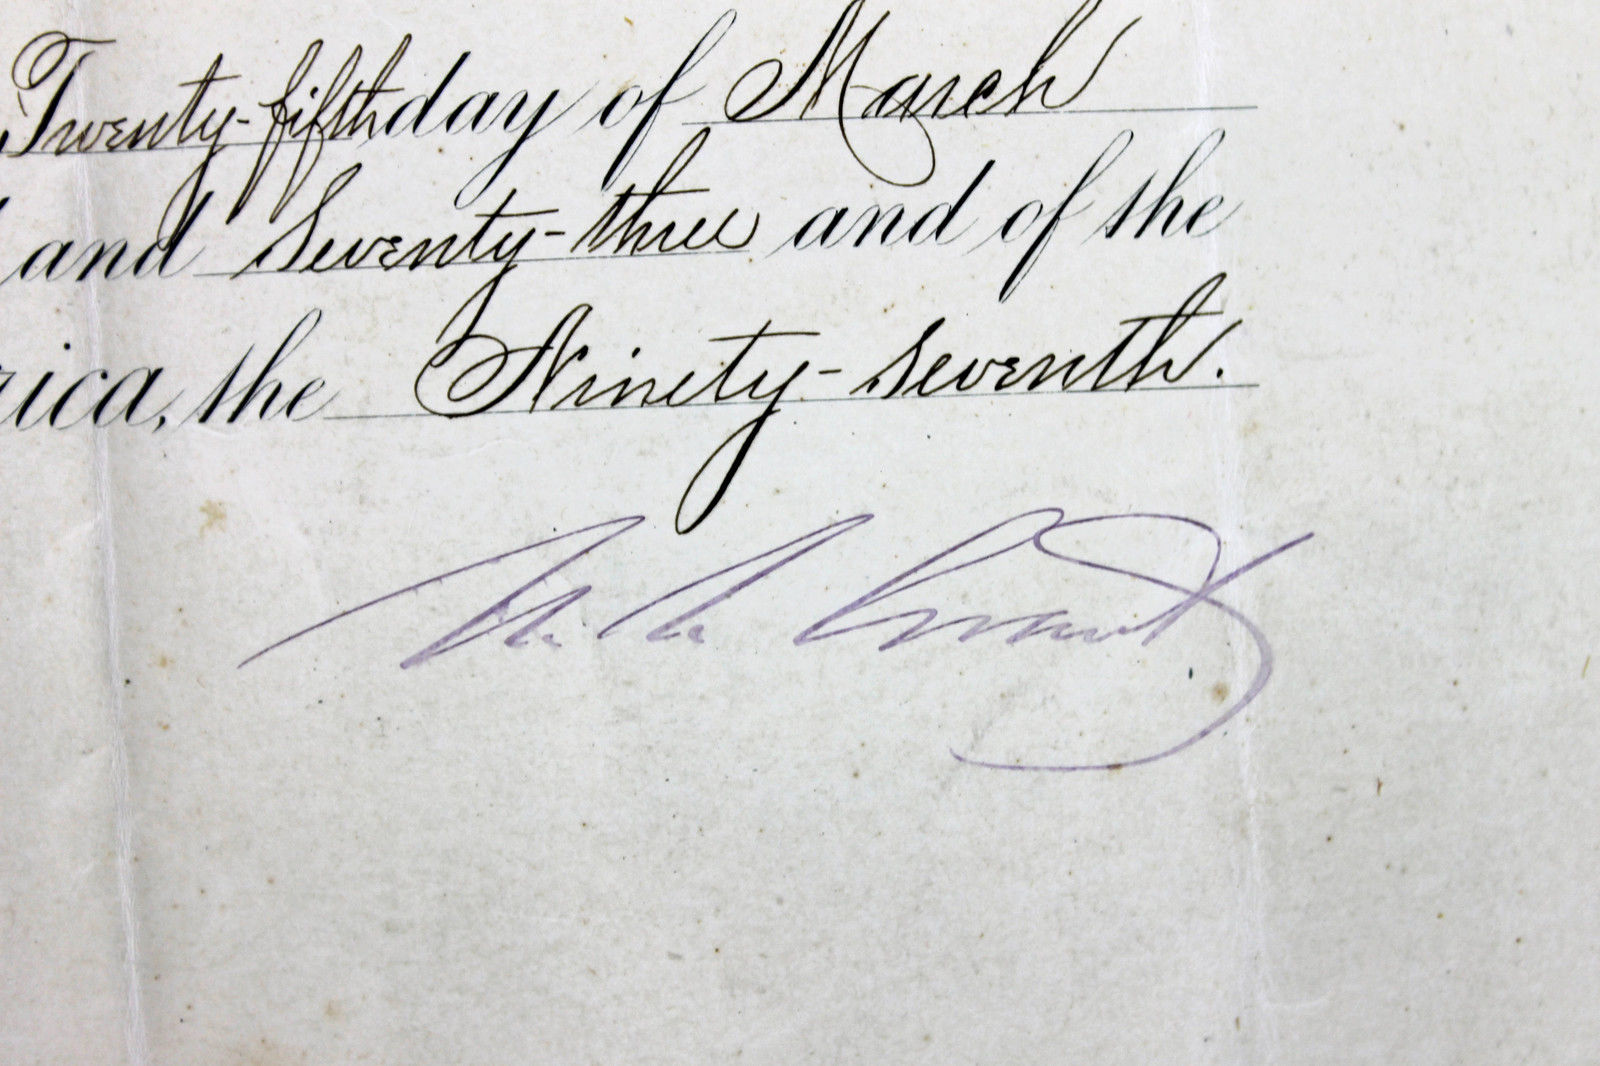 Twenty-fifth day of March
and Seventy-three and of the
rica, the Ninety-seventh.
U. S. Grant